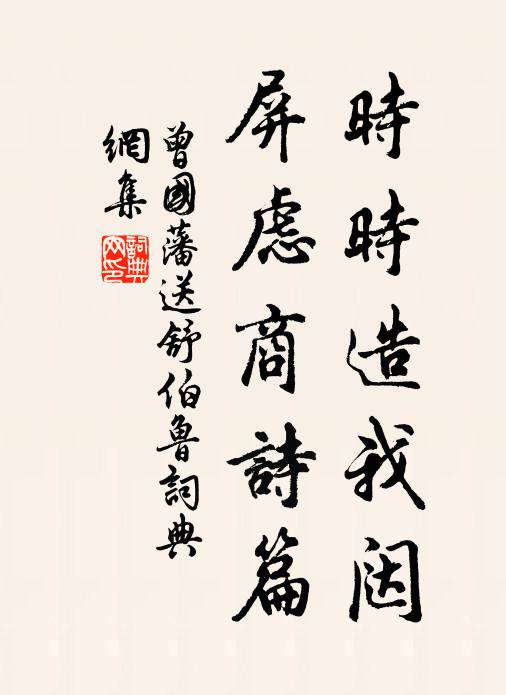 時時造我闊
屏慮商詩篇
曾國藩送舒伯魯詞典
網集
詞典
网印